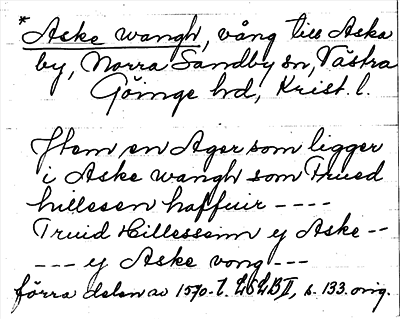 *Aske wangh, vång till Aska
by, Norra Sandby sn, Västra
Göinge hd, Krist. l.
Item en Ager som ligger
i Aske wangh som Trued
hillesen haffuir ----
Truid Hillessenn ij Aske --
--- ij Aske vong ---
förra delen av 1570-t. LSLB II, s. 133. orig.